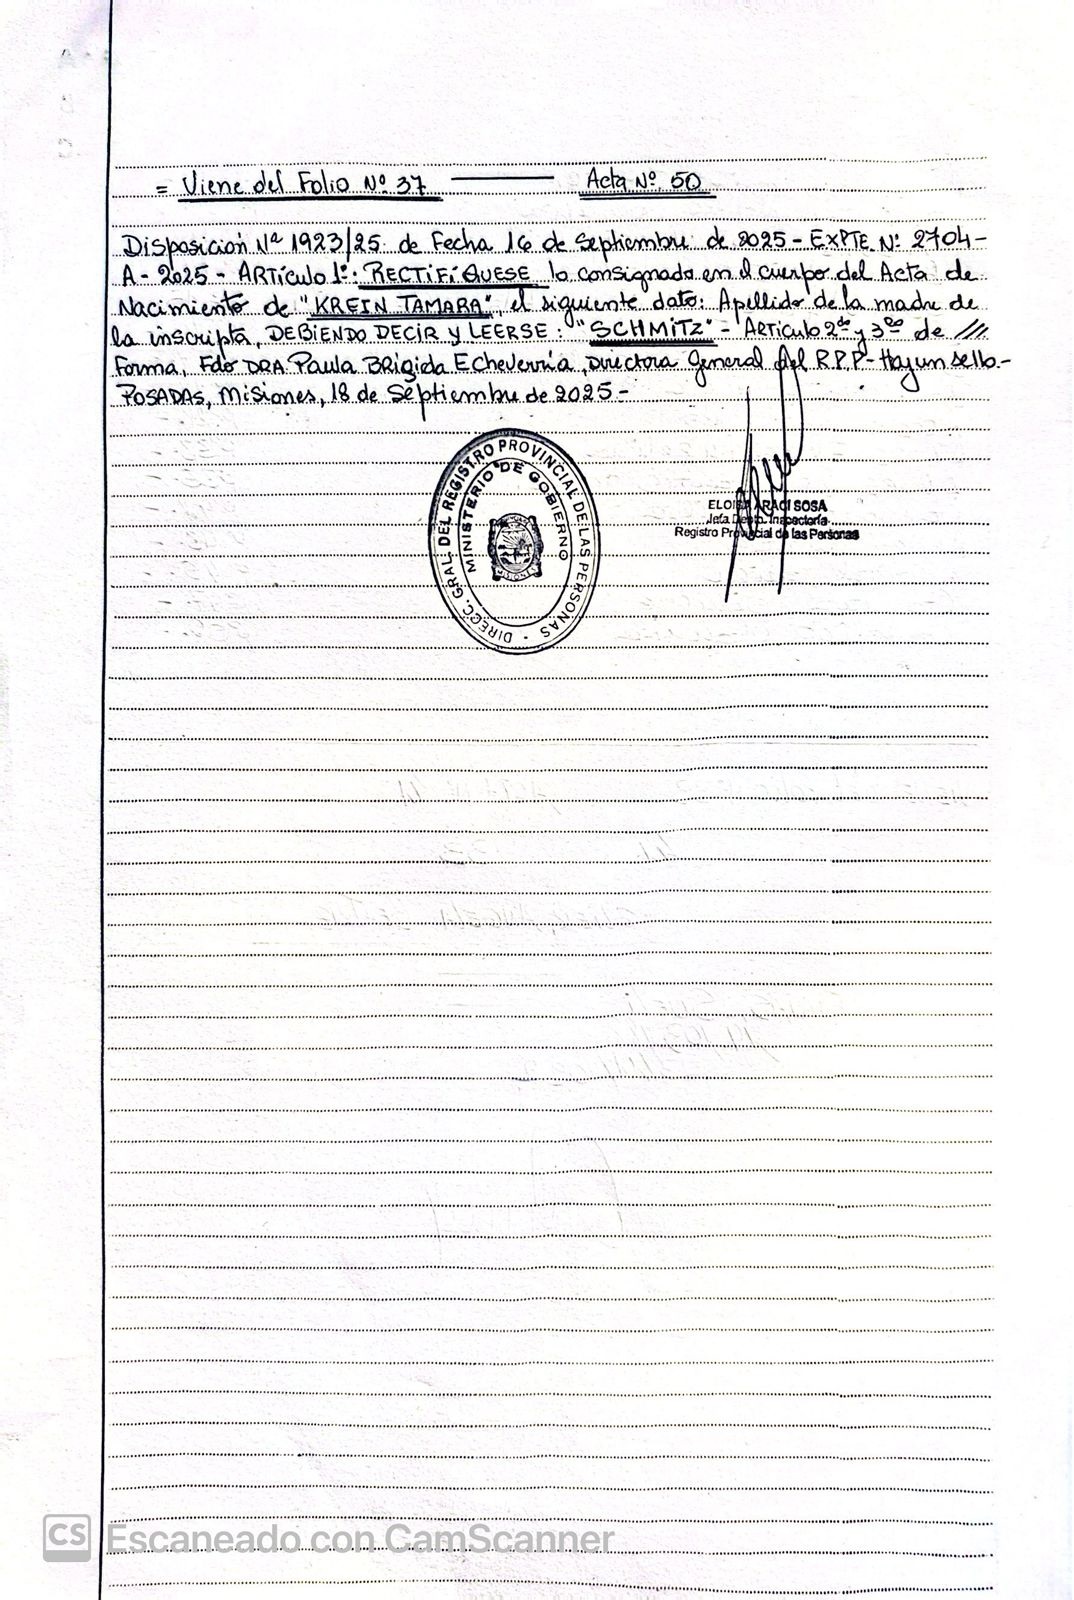 = Viene del Folio Nº 37 ——— Acta Nº 50
Disposición Nº 1923/25 de Fecha 16 de Septiembre de 2025 - EXPTE Nº 2704-
A - 2025 - ARTÍCULO 1º: RECTIFÍQUESE lo consignado en el cuerpo del Acta de
Nacimiento de "KREIN TAMARA", el siguiente dato: Apellido de la madre de
la inscripta, DEBIENDO DECIR y LEERSE: "SCHMITZ" - ARTÍCULO 2do y 3ro de ///
Forma, Fdo DRA. Paula BRígida Echeverría, Directora General del R.P.P - Hay un sello.-
POSADAS, Misiones, 18 de Septiembre de 2025 -
DIRECC. GRAL DEL REGISTRO PROVINCIAL DE LAS PERSONAS
MINISTERIO DE GOBIERNO
MISIONES
SOSA
Jefa Depto. Inspectoría
Registro Provincial de las Personas
CS Escaneado con CamScanner